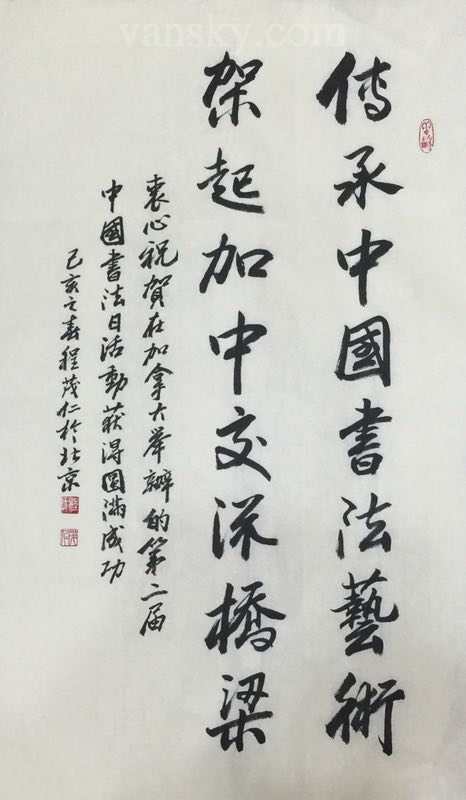 vansky.com
傳承中國書法藝術
架起加中交流橋梁
衷心祝賀在加拿大举辦的第二届
中國書法日活動获得圆滿成功
己亥之春程茂仁於北京